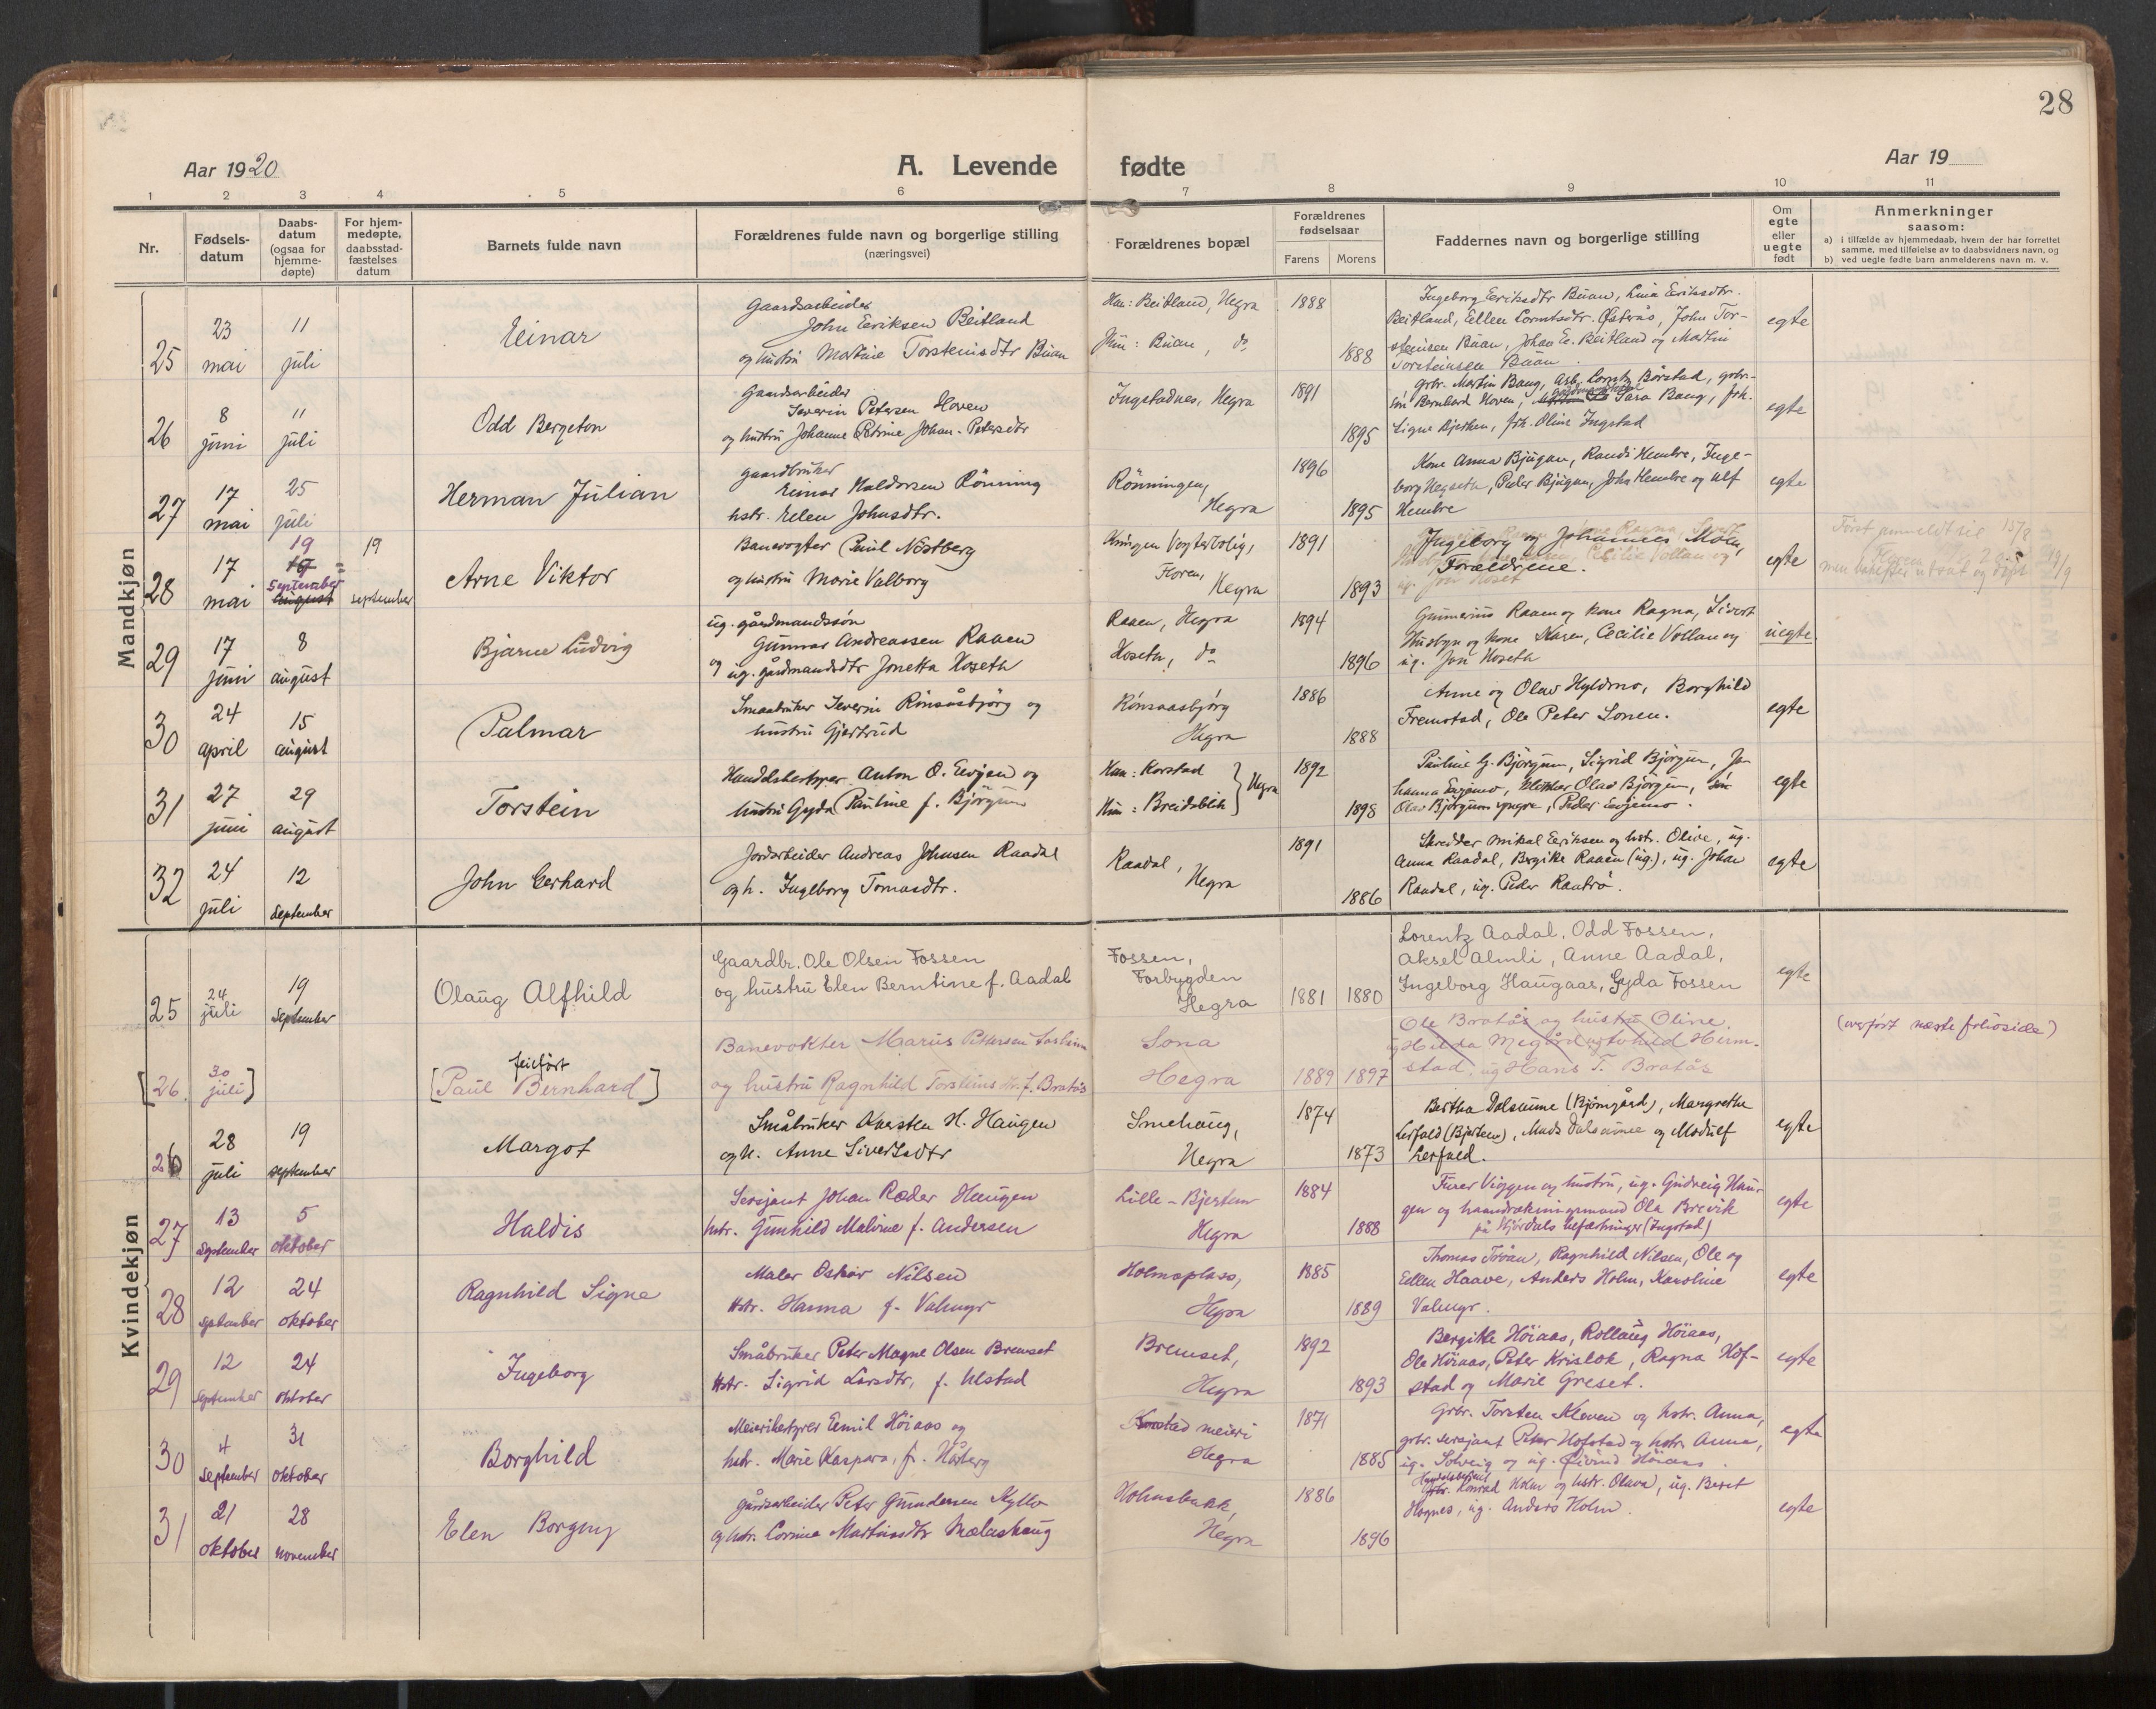 28
Aar 1920
A. Levende fødte
Aar 19
1 2 3 4 5 6 7 8 9 10 11
Nr.
Fødsels-
datum
Daabs-
datum
(ogsaa for
hjemme-
døpte)
For hjem-
medøpte,
daabsstad-
fæstelses
datum
Barnets fulde navn
Forældrenes fulde navn og borgerlige stilling
(næringsvei)
Forældrenes bopæl
Forældrenes
fødselsaar
Farens Morens
Faddernes navn og borgerlige stilling
Om
egte
eller
uegte
født
Anmerkninger
saasom:
a) i tilfælde av hjemmedaab, hvem der har forrettet
samme, med tilføielse av to daabsvidners navn, og
b) ved uegte fødte barn anmelderens navn m. v.
Mandkjøn
25
23
mai
11
juli
Einar
Gaardsarbeider
John Eriksen Beitland
og hustru Martine Torsteinsdtr Buan
Han: Beitland, Hegra
Hun: Buan, do
1888
1888
Ingeborg Eriksdtr Buan, Lina Eriksdtr.
Beitland, Ellen Lorntsdtr. Østerås, John Tor-
steinsen Buan, Johan E. Beitland og Martin
Torsteinsen Buan
egte
26
8
juni
11
juli
Odd Bergeton
Gaardsarbeider
Severin Petersen Hoven
og hustru Johanne Petrine Johan-Petersdtr
Ingstadnes, Hegra
1891
1895
grbr. Martin Bang, Arb. Lornts Børstad, grbr.-
søn Bernhard Hoven, Sara Bang, frk.
Signe Bjerken, frk. Oline Ingstad
egte
27
17
mai
25
juli
Herman Julian
gaardbruker
Einar Haldorsen Rönning
hstr. Elen Johnsdtr.
Rönningen,
Hegra
1896
1895
Kone Anna Bjugan, Randi Hembre, Inge-
borg Hegseth, Peder Bjugan, John Hembre og Ulf
Hembre
egte
28
17
mai
19
september
august
19
september
Arne Viktor
Banevogter Paul Nöstberg
og hustru Marie Valborg
Vogterbolig,
Floren,
Hegra
1891
1893
Ingeborg og Johannes Moen,
Forældrene.
egte
Først anmeldt til 15/8
29
17
juni
8
august
Bjarne Ludvig
ug. gårdmandssøn
Gunnar Andreassen Raaen
og ug. gårdmandsdtr Jonetta Hoseth
Raaen, Hegra
Hoseth, do
1894
1896
Gunnerius Raaen og kone Ragna, Sivert
Husbyn og kone Karen, Cecilie Vollan og
ug. Jon Hoseth
uegte
30
24
april
15
august
Palmar
Smaabruker Severin Rönsåsbjörg og
hustru Gjertrud
Rönsaasbjörg
Hegra
1886
1888
Anne og Olav Hyldmo, Borghild
Fremstad, Ole Peter Sonen.
egte
31
27
juni
29
august
Torstein
Handelsbestyrer Anton O. Evjen og
hustru Gyda Pauline f. Björgum
Han: Korstad
Hun: Breidablik
Hegra
1892
1898
Pauline G. Björgum, Sigrid Björgum, Jo-
hanna Evjemo, Olav Björgum,
Olav Björgum yngre, Peder Evjemo.
egte
32
24
juli
12
september
John Gerhard
Jordarbeider Andreas Johnsen Raadal
og h. Ingeborg Tomasdtr.
Raadal,
Hegra
1891
1886
Skredder Mikal Eriksen og hstr. Olive, ug.
Anna Raadal, Bergitte Raaen (ug.), ug. Johan
Raadal, ug. Peder Raatrø.
egte
Kvindekjøn
25
24
juli
19
september
Olaug Alfhild
Gaardbr. Ole Olsen Fossen
og hustru Elen Berntine f. Aadal
Fossen,
Forbygden
Hegra
1881 1880
Lorentz Aadal, Odd Fossen,
Aksel Almli, Anne Aadal,
Ingeborg Haugaas, Gyda Fossen
egte
[26.
30
juli]
feilført
[Paul Bernhard]
Banevokter Marius Pettersen
og hustru Ragnhild Torsteinsdtr. f. Bratås
Sona
Hegra
1889 1897
Ole Bratås og hustru Oline,
ug Hilda Megård
stad, ug Hans T. Bratås
(overført næste folioside)
26
28
juli
19
september
Margot
Småbruker Karsten H. Haugen
og h. Anne Sivertsdtr
Smehaug,
Hegra
1874
1873
Bertha Dalsaune (Bjørngård), Margrethe
Lerfald (Bjertem), Mads Dalsaune og Modulf
Lerfald.
egte
27
13
september
5
oktober
Haldis
Sersjant Johan Røder Haugen
hstr. Gunhild Maline f. Andersen
Lille-Bjertem
Hegra
1884
1888
Furer Viggen og hustru, ug. Gudveig Hau-
gen og haandrakningsmand Ola Brevik
på Stjördals befæstninger (Ingstad)
egte
28
12
september
24
oktober
Ragnhild Signe
Maler Oskar Nilsen
Hstr. Hanna f. Valmyr
Holmoplass,
Hegra
1885
1889
Thomas Tovan, Ragnhild Nilsen, Ole og
Ellen Haave, Anders Holm, Karoline
Valmyr.
egte
29
12
september
24
oktober
Ingeborg
Småbruker Peter Magne Olsen Bremset
Hstr. Sigrid Larsdtr, f. Ulstad
Bremset,
Hegra
1892
1893
Bergitte Höiaas, Rollaug Höiaas,
Ole Höiaas, Peter Kristok, Ragna Hof-
stad og Marie Greset.
egte
30
4
september
31
oktober
Borghild
Meieribestyrer Emil Höiaas og
hstr. Marie Kaspara, f. Hårberg
Korstad meieri
Hegra
1871
1885
Grbr. Torsten Kleven og hstr. Anna,
grbr. sersjant Peter Hofstad og hstr. Anna,
ug. Solveig og ug. Eivind Höiaas.
egte
31
21
oktober
28
november
Elen Borgny
gårdsarbeider Peter Gundersen Kyllo
og hstr. Lorina Martinsdtr Mælashaug
Holmsbakk,
Hegra
1886
1896
Handelsbetjent
Konrad Holm og hstr. Olava, ug. Beret
Hognes, ug. Anders Holm.
egte